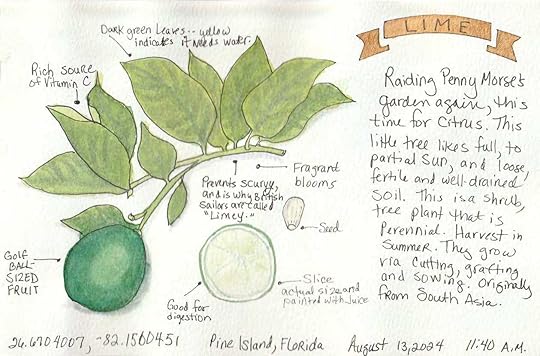 LIME
Dark green leaves -- yellow
indicates it needs water.
Rich source
of Vitamin C
Prevents scurvy,
and is why British
Sailors are called
"Limey."
Fragrant
blooms
Seed
Golf
BALL-
SIZED
FRUIT
Good for
digestion
Slice
actual size and
painted with Juice
Raiding Penny Morse's
garden again, this
time for Citrus. This
little tree likes full, to
partial Sun, and loose,
fertile and well-drained
Soil. This is a shrub,
tree plant that is
Perennial. Harvest in
Summer. They grow
via cutting, grafting
and sowing. Originally
from South Asia.
26.6704007, -82.1560451 Pine Island, Florida August 13, 2024 11:40 A.M.